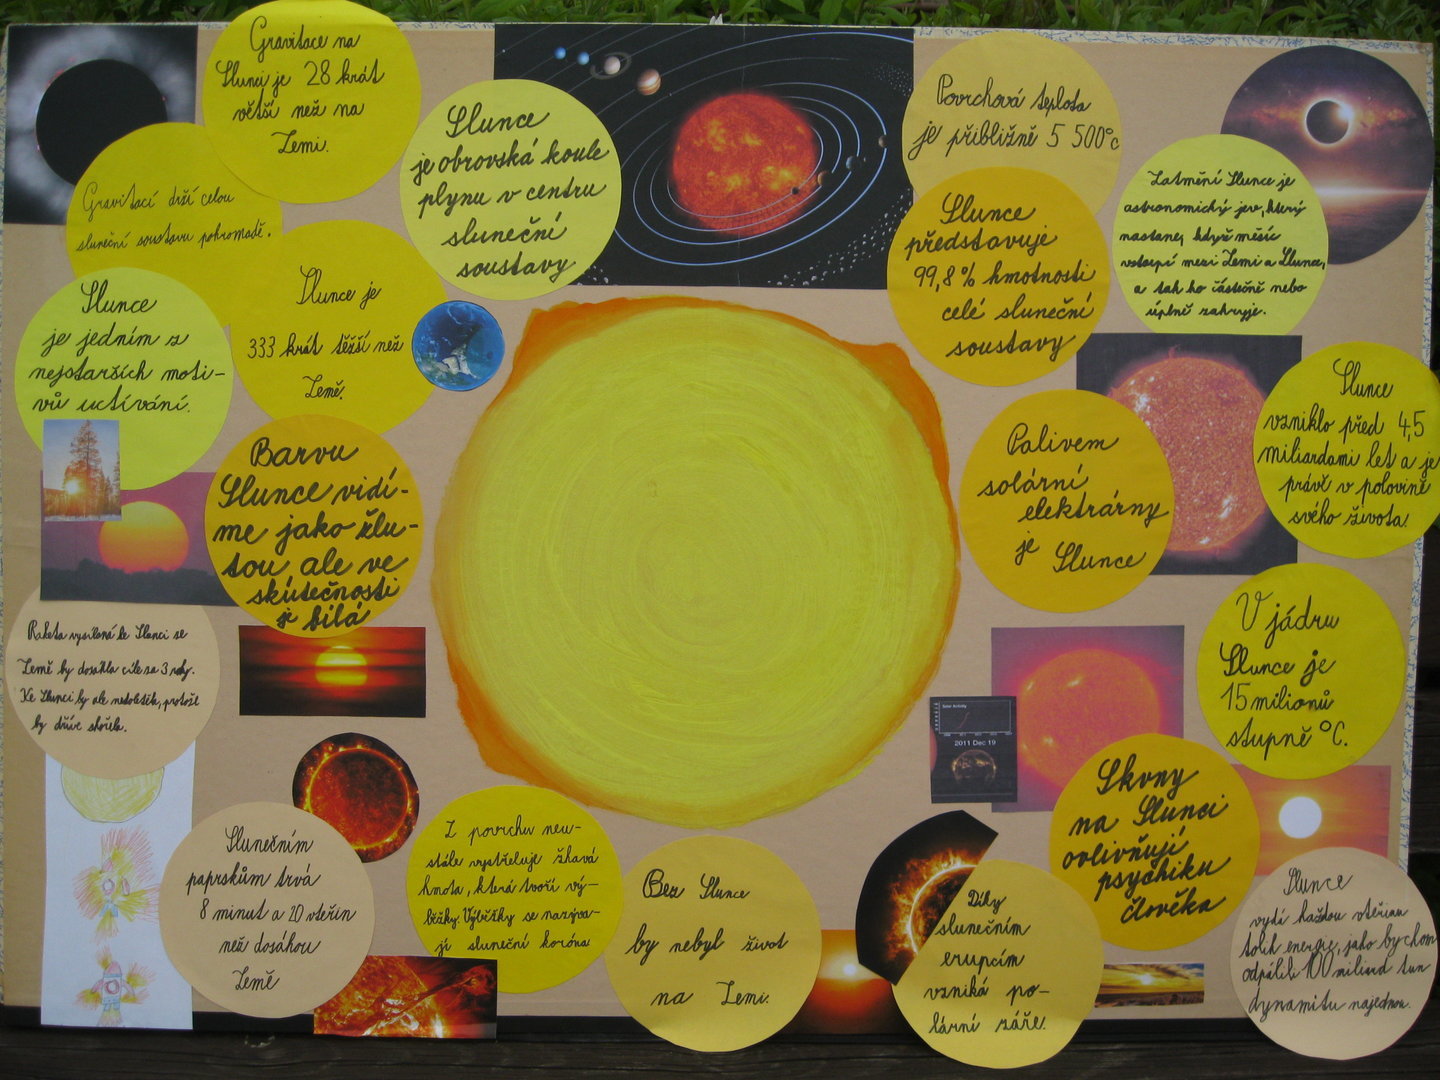 Gravitace na
Slunci je 28 krát
větší než na
Zemi.
Gravitací drží celou
sluneční soustavu pohromadě.
Slunce
je obrovská koule
plynu v centru
sluneční
soustavy
Povrchová teplota
je přibližně 5 500°c
Slunce
představuje
99,8% hmotnosti
celé sluneční
soustavy
Zatmění Slunce je
astronomický jev, který
nastane, když měsíc
vstoupí mezi Zemi a Slunce,
a tak ho částečně nebo
úplně zakryje.
Slunce
je jedním z
nejstarších moti-
vů uctívání.
Slunce je
333 krát těžší než
Země.
Barvu
Slunce vidí-
me jako žlu-
tou ale ve
skutečnosti
je bílá
Palivem
solární
elektrárny
je Slunce
Slunce
vzniklo před 4,5
miliardami let a je
právě v polovině
svého života.
Raketa vyslaná ke Slunci ze
Země by dosáhla cíle za 3 roky.
Ke Slunci by ale nedoletěla, protože
by dříve shořela.
V jádru
Slunce je
15 milionů
stupně °C.
Solar Activity
2011 Dec 19
Skvrny
na Slunci
ovlivňují
psychiku
člověka
Slunečním
paprskům trvá
8 minut a 20 vteřin
než dosáhou
Země
Z povrchu neu-
stále vystřeluje žhavá
hmota, která tvoří vý-
běžky. Výběžky se nazýva-
jí sluneční koróna
Bez Slunce
by nebyl život
na Zemi.
Díky
slunečním
erupcím
vzniká po-
lární záře.
Slunce
vydá každou vteřinu
tolik energie, jako bychom
odpálili 100 miliard tun
dynamitu najednou.